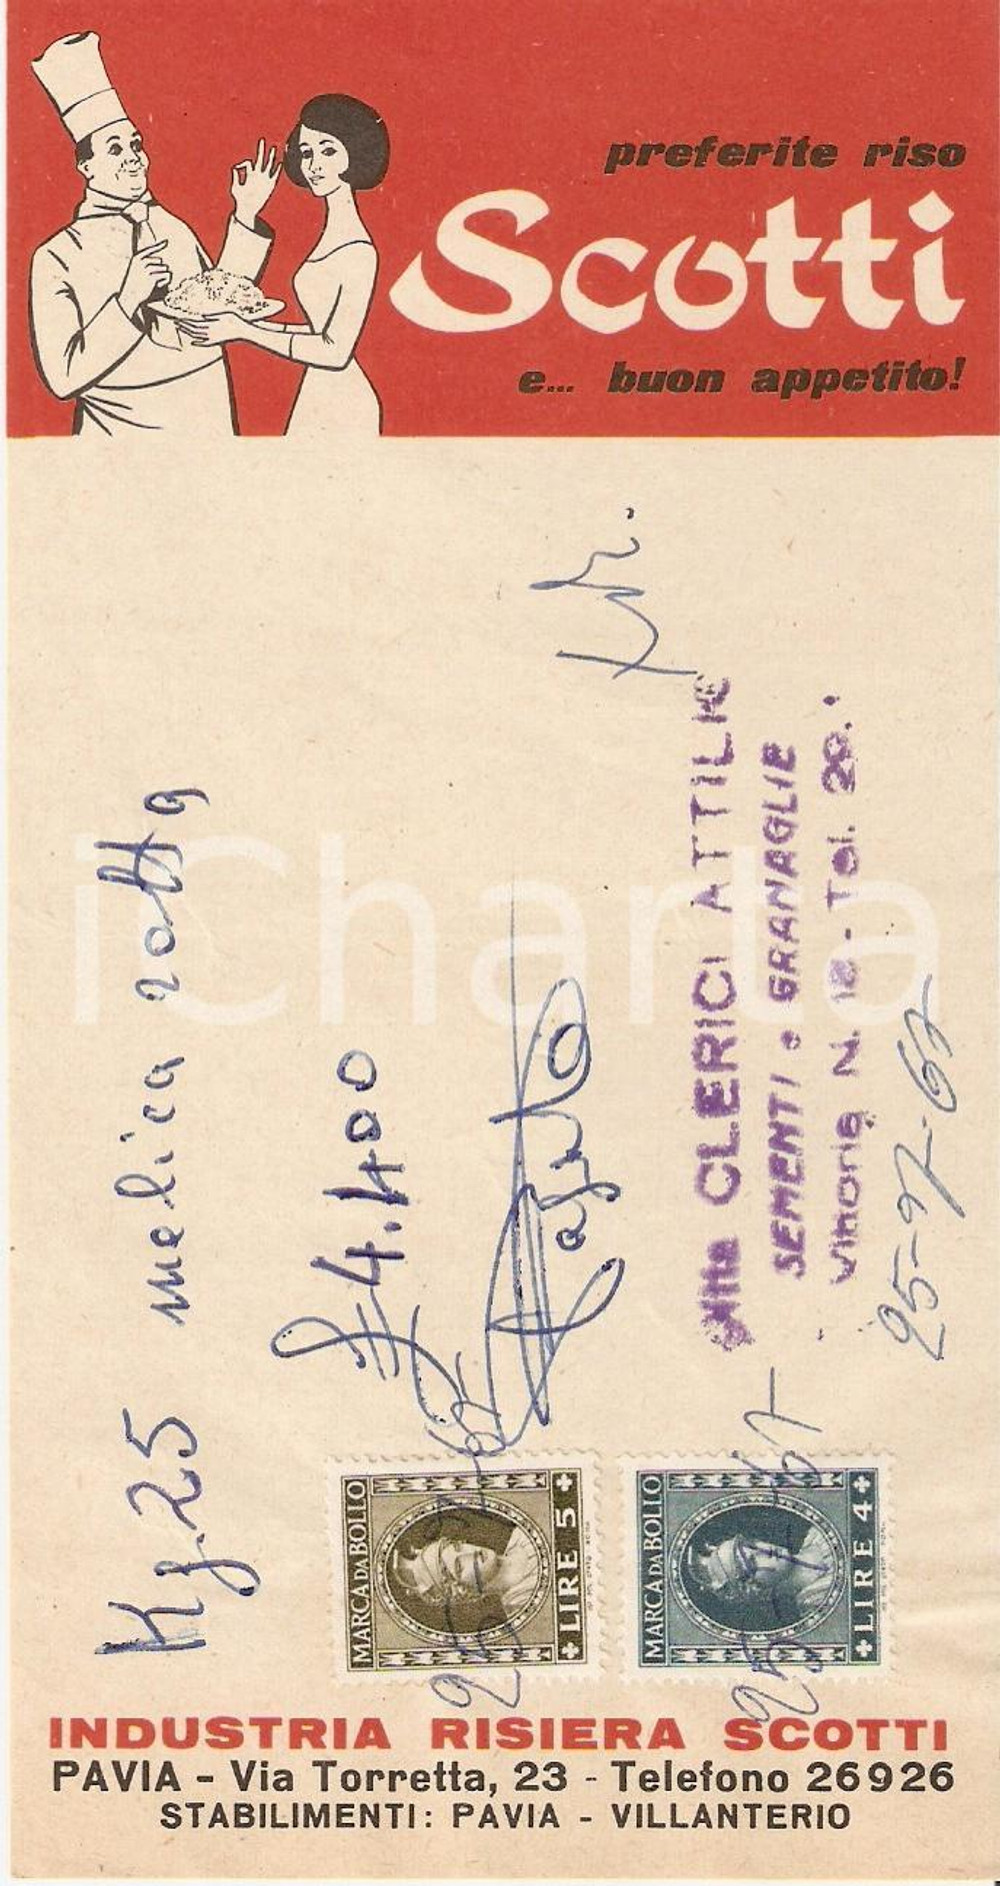 preferite riso
Scotti
e... buon appetito!
Kg. 25 melica rotta
£ 4.400
CLERICI ATTILIO
SEMENTI e GRANAGLIE
Vittoria N. 18 - Tel. 29.
25-7-67
MARCA DA BOLLO
LIRE 5
25-7-67
MARCA DA BOLLO
LIRE 4
25-7-67
iCharta
INDUSTRIA RISIERA SCOTTI
PAVIA - Via Torretta, 23 - Telefono 26926
STABILIMENTI: PAVIA - VILLANTERIO